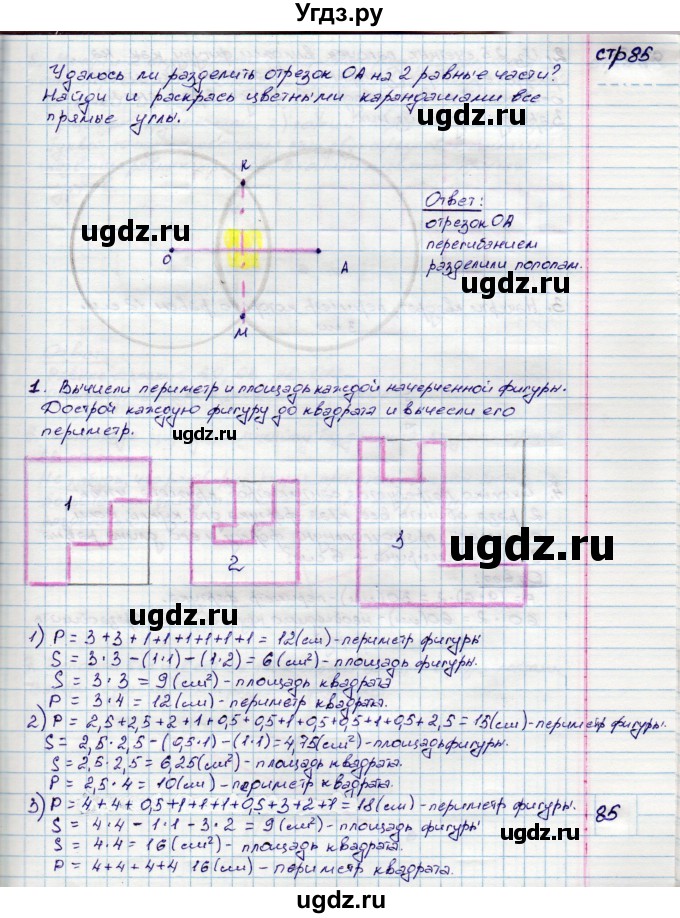 Угдз.ру
стр85
Удалось ли разделить отрезок ОА на 2 равные части?
Найди и раскрась цветными карандашами все
прямые углы.
ugdz.ru
К
ugdz.ru
О
А
М
Ответ:
отрезок ОА
перегибанием
разделили пополам.
ugdz.ru
1. Вычисли периметр и площадь каждой начерченной фигуры.
Дострой каждую фигуру до квадрата и вычесли его
периметр.
ugdz.ru
1
2
3
ugdz.ru
ugdz.ru
1) P = 3+3+1+1+1+1+1+1 = 12(см)-периметр фигуры
S = 3·3-(1·1)-(1·2) = 6(см²)-площадь фигуры.
S = 3·3 = 9(см²)-площадь квадрата
P = 3·4 = 12(см)-периметр квадрата.
2) P = 2,5+2,5+2+1+0,5+0,5+1+0,5+0,5+1+0,5+2,5=15(см)-периметр фигуры.
S = 2,5·2,5-(0,5·1)-(1·1)=4,75(см²)-площадь фигуры.
S = 2,5·2,5 = 6,25(см²)-площадь квадрата.
P = 2,5·4 = 10(см)-периметр квадрата.
ugdz.ru
3) P = 4+4+0,5+1+1+1+0,5+3+2+1 = 18(см)-периметр фигуры.
S = 4·4-1·1-3·2 = 9(см²)-площадь фигуры
S = 4·4 = 16(см²)-площадь квадрата.
P = 4+4+4+4 16(см)-периметр квадрата.
85
ugdz.ru
ugdz.ru